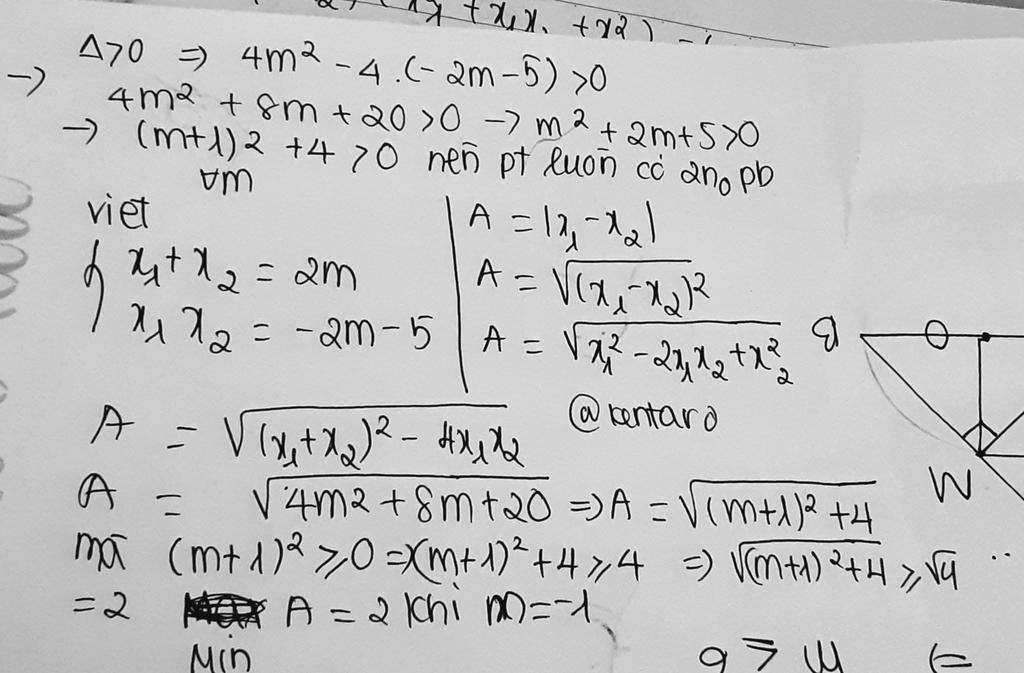 Δ>0 ⇒ 4m² - 4.(-2m-5) >0
→ 4m² + 8m + 20 >0 → m² + 2m+5 >0
→ (m+1)² +4 >0 nên pt luôn có 2n₀ pb
∀m
viet
{ x₁ + x₂ = 2m
x₁ x₂ = -2m-5
A = |x₁-x₂|
A = √(x₁-x₂)²
A = √x₁² - 2x₁x₂ + x₂²
@kentaro
A = √(x₁+x₂)² - 4x₁x₂
A = √4m² + 8m+20 ⇒ A = √(m+1)² +4
mà (m+1)² ≥0 ⇒(m+1)² +4 ≥4 ⇒ √(m+1)²+4 ≥√4
=2 A = 2 khi m=-1
Min